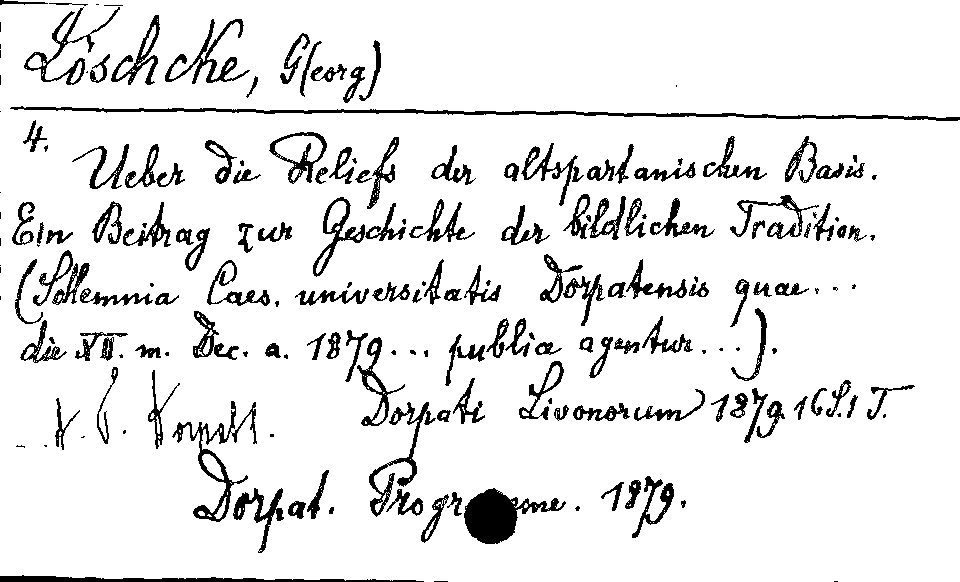 Löschcke, G(eorg)
4.
Ueber die Reliefs der altspartanischen Basis.
Ein Beitrag zur Geschichte der bildlichen Tradition.
(Sollemnia Caes. universitatis Dorpatensis quae...
die XII. m. Dec. a. 1879... publice agentur...).
Dorpati Livonorum 1879. 16 S. 1 T.
Dorpat. Programme. 1879.